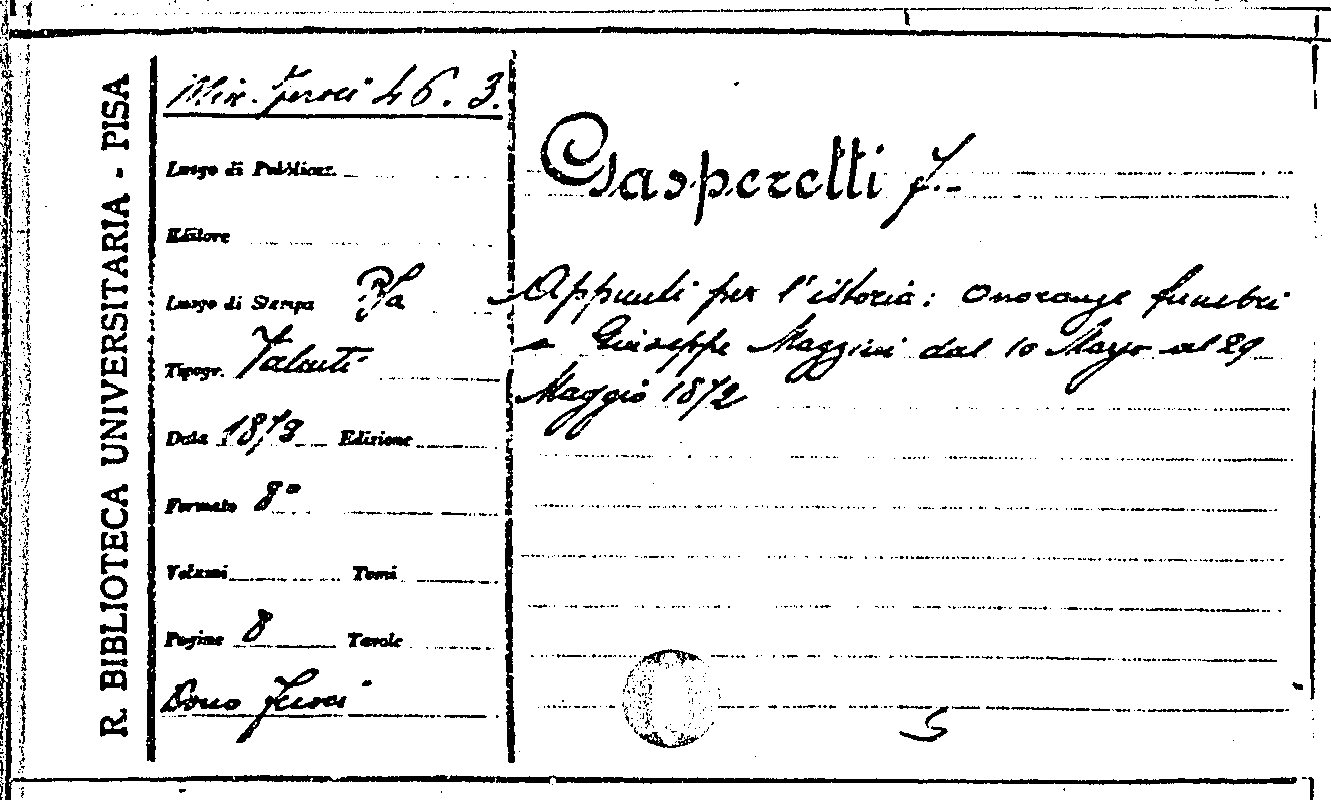 R. BIBLIOTECA UNIVERSITARIA - PISA
Misc. Feroci 46. 3.
Luogo di Pubblicaz.
Editore
Luogo di Stampa Pisa
Tipogr. Valenti
Data 1872 Edizione
Formato 8°
Volumi Tomi
Pagine 8 Tavole
Dono Feroci
Gasperetti F.
Appunti per l'istoria: Onoranze funebri
a Giuseppe Mazzini dal 10 Marzo al 29
Maggio 1872